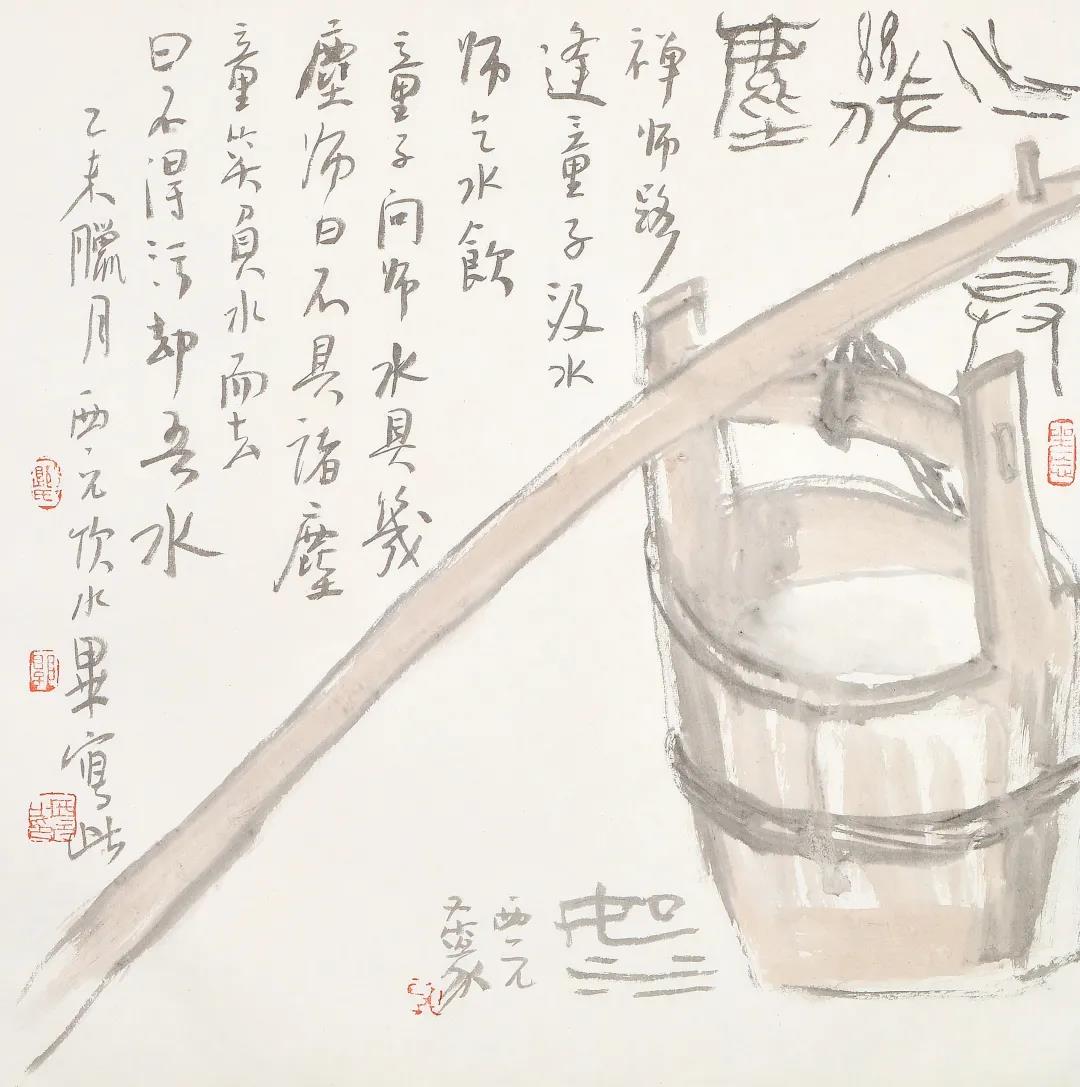 幾
塵
禅师路
逢童子汲水
师乞水飲
童子问师水具幾
塵师曰不具諸塵
童笑負水而去
曰不得污却吾水
乙未臘月西元饮水畢寫此
西元
又篆